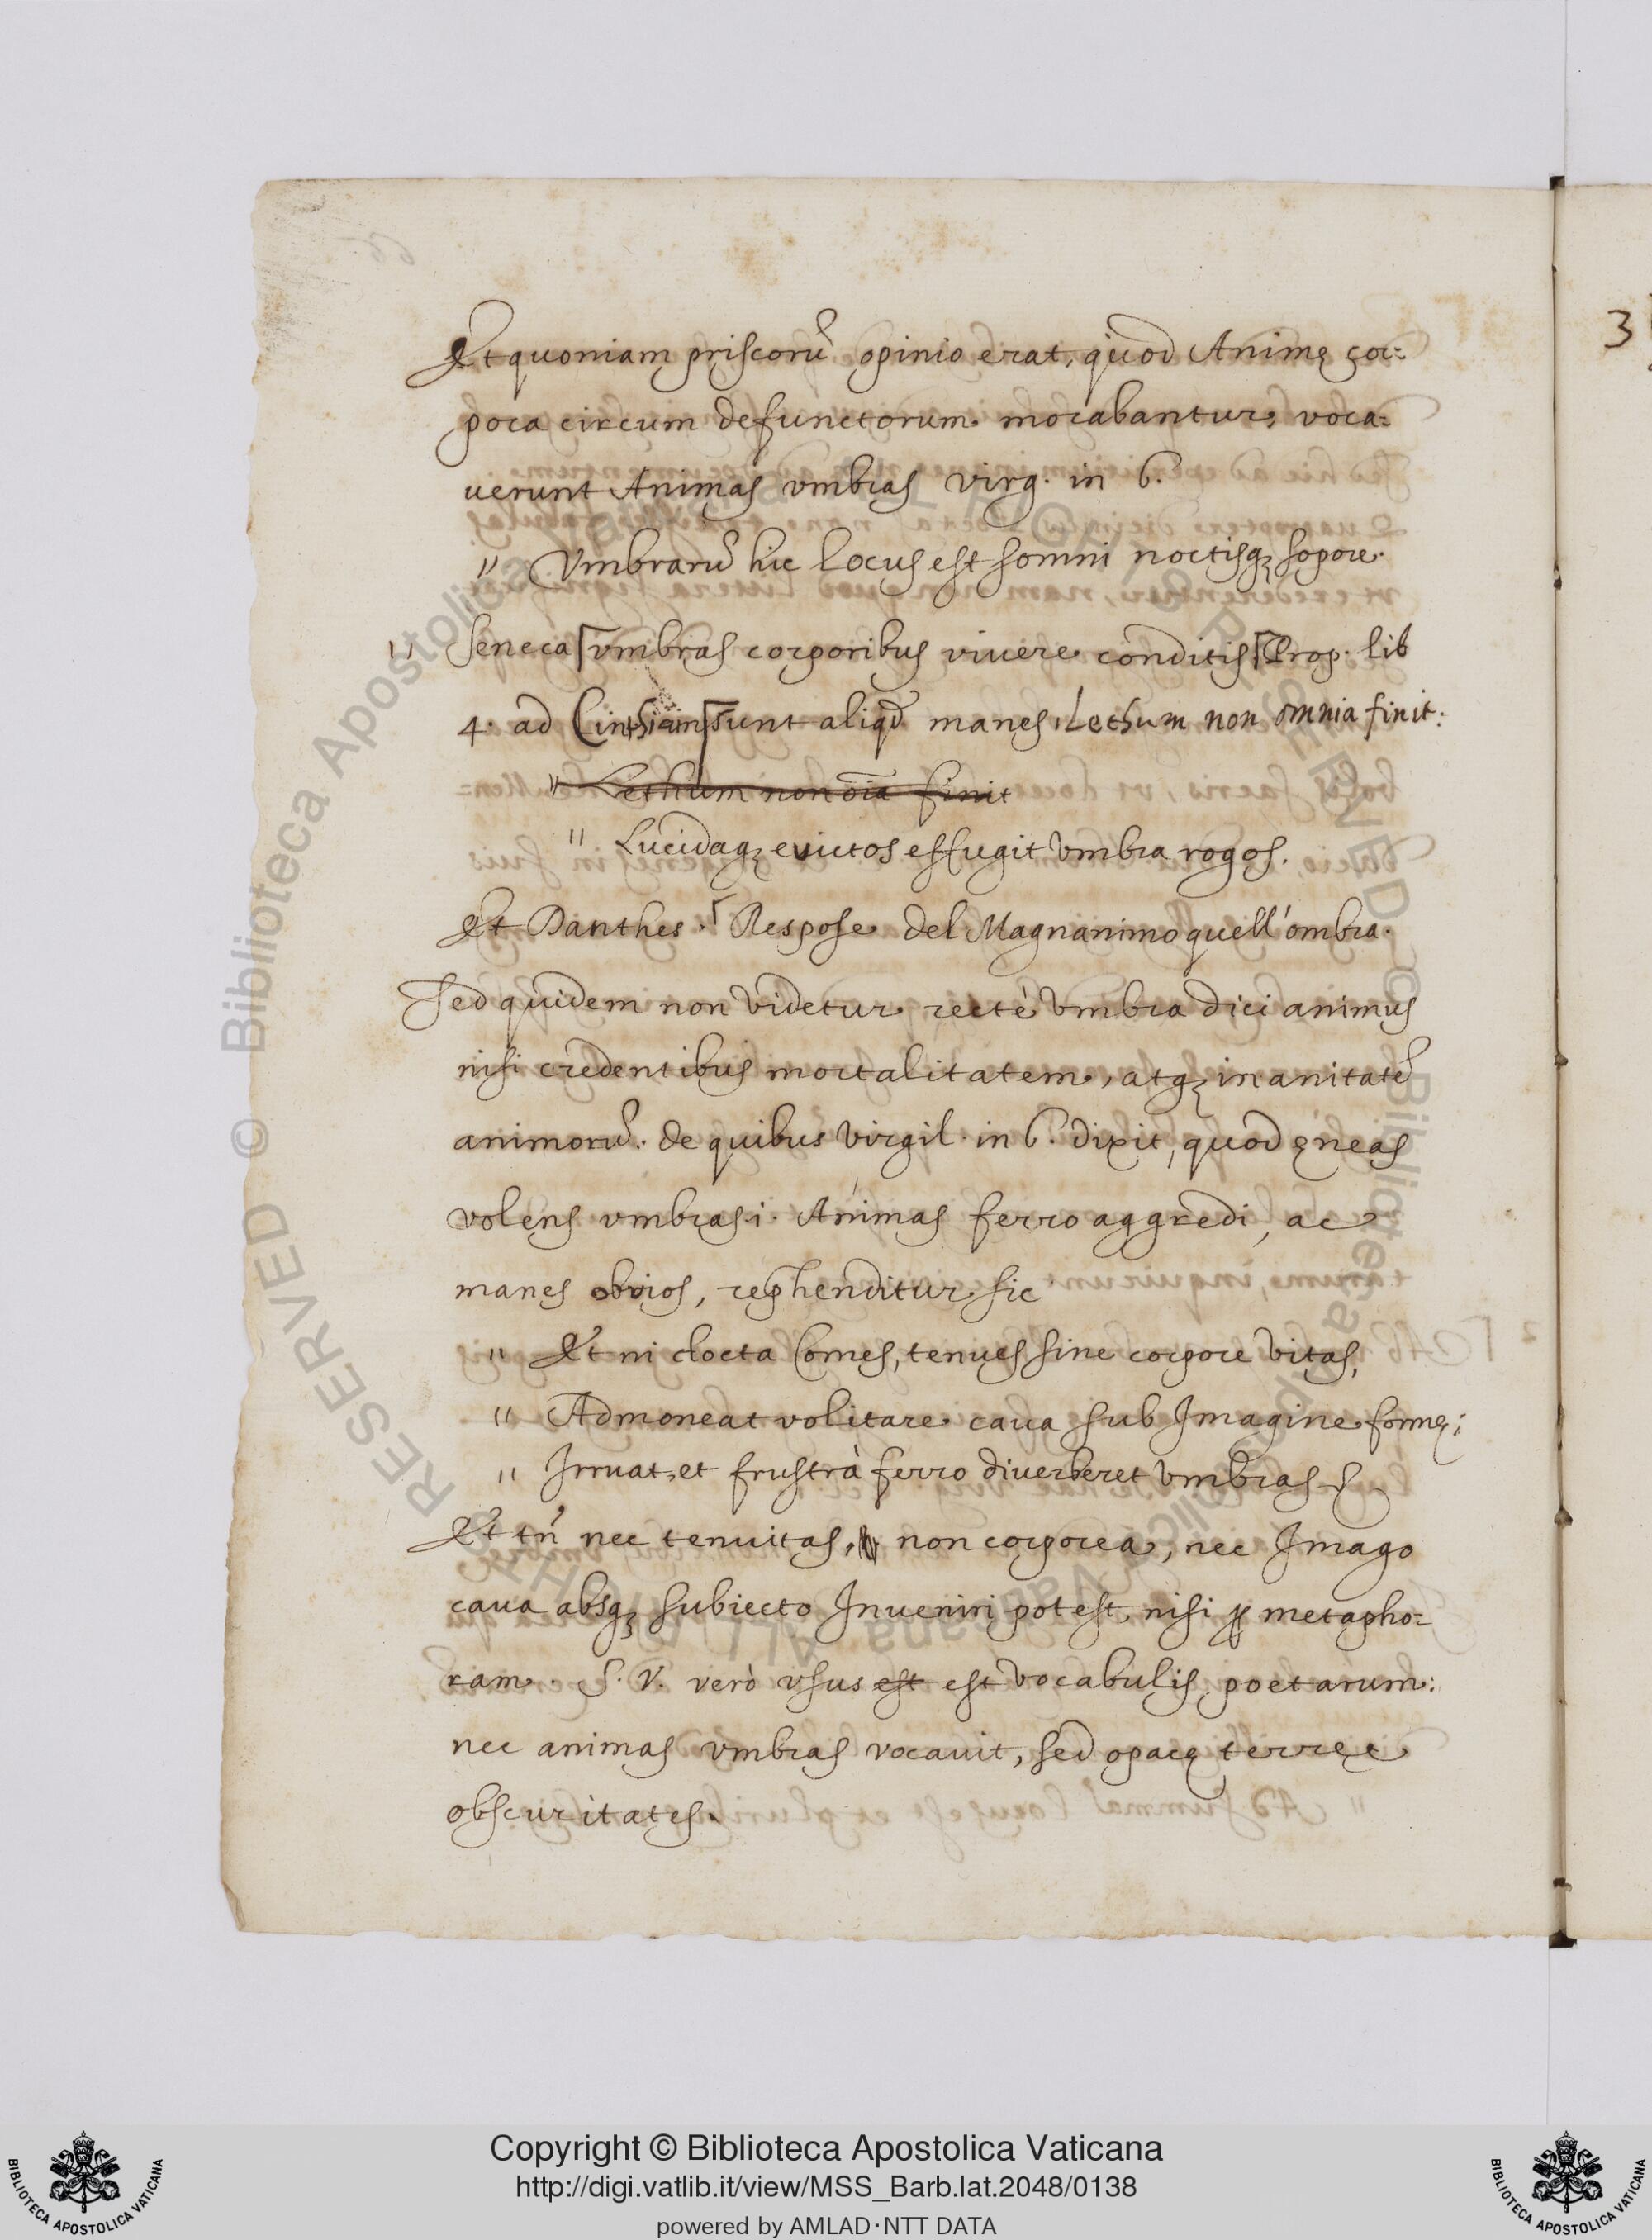 Et quoniam priscorũ opinio erat, quod Animę cor=
pora circum defunctorum morabantur, voca=
uerunt Animas vmbras virg. in 6.
" Vmbrarũ hic locus est somni noctisq; sopore.
" Seneca ⌈vmbras corporibus viuere conditis⌈Prop. lib
4. ad Cinthiam⌈sunt aliqd manes, Lethum non omnia finit:
" Lethum non oĩa finit
" Lucidaq; euictos effugit vmbra rogos.
Et Danthes.⌈Respose del Magnanimo quell'ombra.
Sed quidem non videtur rectè vmbra dici animus
nisi credentibus mortalitatem, atq; inanitatẽ
animorũ. de quibus Virgil. in 6. dixit, quod ęneas
volens vmbras .i. Animas ferro aggredi, ac
manes obvios, rephenditur sic
" Et ni docta Comes, tenues sine corpore vitas,
" Admoneat volitare caua sub Imagine formę;
" Irruat, et frustrà ferro diuerberet vmbras
Et tñ nec tenuitas, non corporea, nec Imago
caua absq; subiecto Inueniri potest, nisi ꝑ metapho=
ram. S. V. verò vsus est est vocabulis poetarum:
nec animas vmbras vocauit, sed opacę terrę
obscuritates.
3
Copyright © Biblioteca Apostolica Vaticana
http://digi.vatlib.it/view/MSS_Barb.lat.2048/0138
powered by AMLAD·NTT DATA
BIBLIOTECA APOSTOLICA VATICANA
BIBLIOTECA APOSTOLICA VATICANA